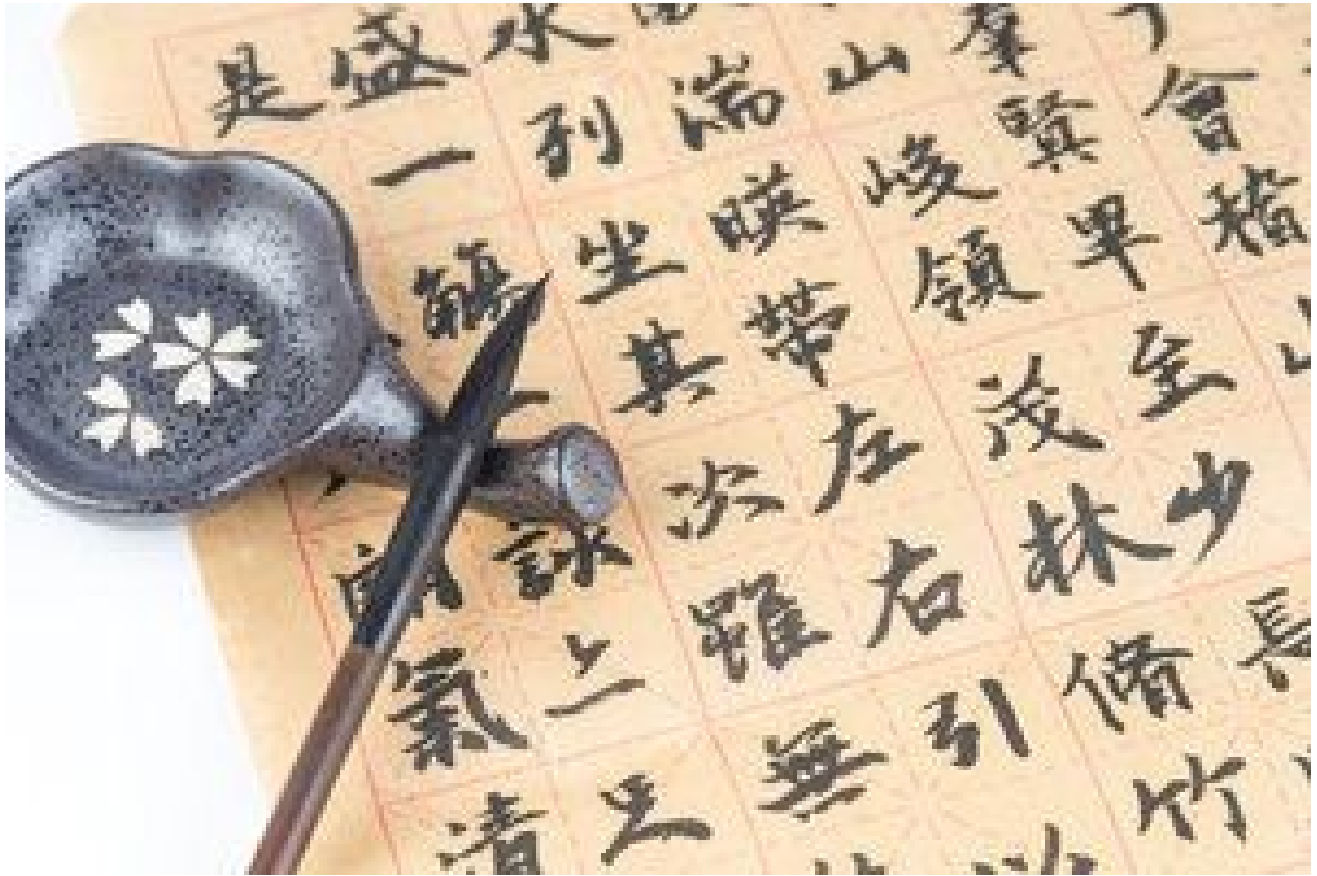 會稽
羣賢畢至少長
山峻領茂林脩竹
湍暎帶左右引
水列坐其次雖無
盛一觴一詠亦足
是朗氣清